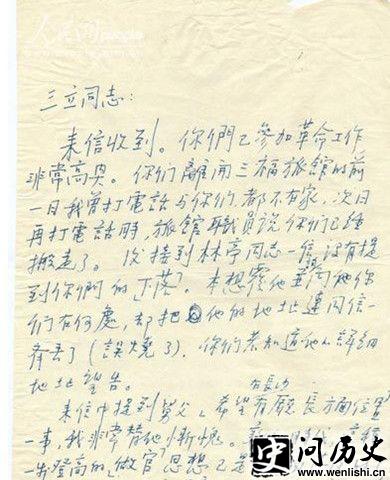 人民网 people
三立同志:
来信收到。你們已參加革命工作
非常高興。你们離開三福旅館的前
一日我曾打電話与你们,都不在家,次日
再打電話時,旅館職員說你们已經
搬走了。後接到林亭同志一信,没有提
到你們的下落。本想覆他並詢他你
们在何處,却把他的地址連同信一
齊丟了(誤燒了)。你们若知道他的詳細
地址望告。
来信中提到舅父:希望在長沙有厰長方面位置
一事,我非常替他慚愧。
步登高的「做官」思想已是
问历史
www.wenlishi.cn